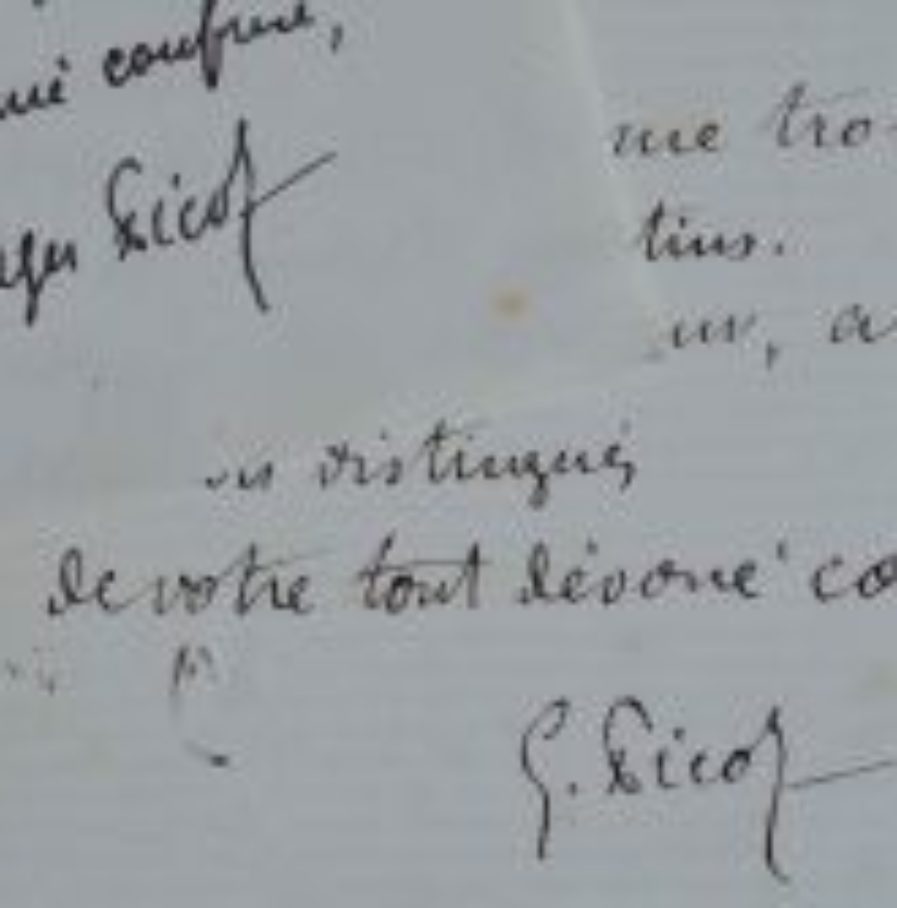 confrère,
Picot
me tro-
tins.
distingués
de votre tout dévoué co
G. Picot